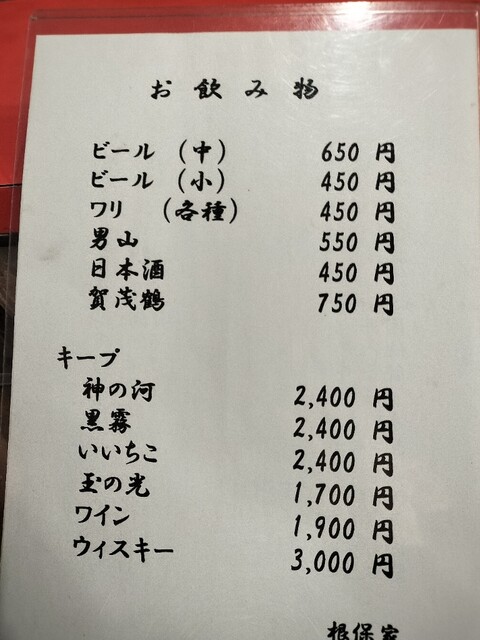 お飲み物
ビール （中） 650 円
ビール （小） 450 円
ワリ （各種） 450 円
男山 550 円
日本酒 450 円
賀茂鶴 750 円
キープ
神の河 2,400 円
黒霧 2,400 円
いいちこ 2,400 円
玉の光 1,700 円
ワイン 1,900 円
ウィスキー 3,000 円
根保家